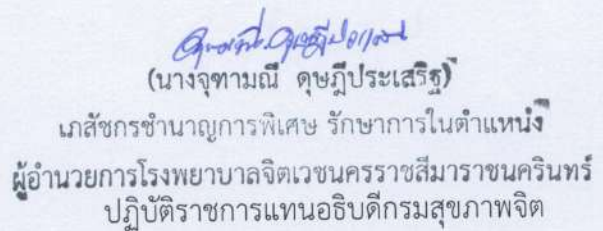 (นางจุฑามณี ดุษฎีประเสริฐ)
เภสัชกรชำนาญการพิเศษ รักษาการในตำแหน่ง
ผู้อำนวยการโรงพยาบาลจิตเวชนครราชสีมาราชนครินทร์
ปฏิบัติราชการแทนอธิบดีกรมสุขภาพจิต